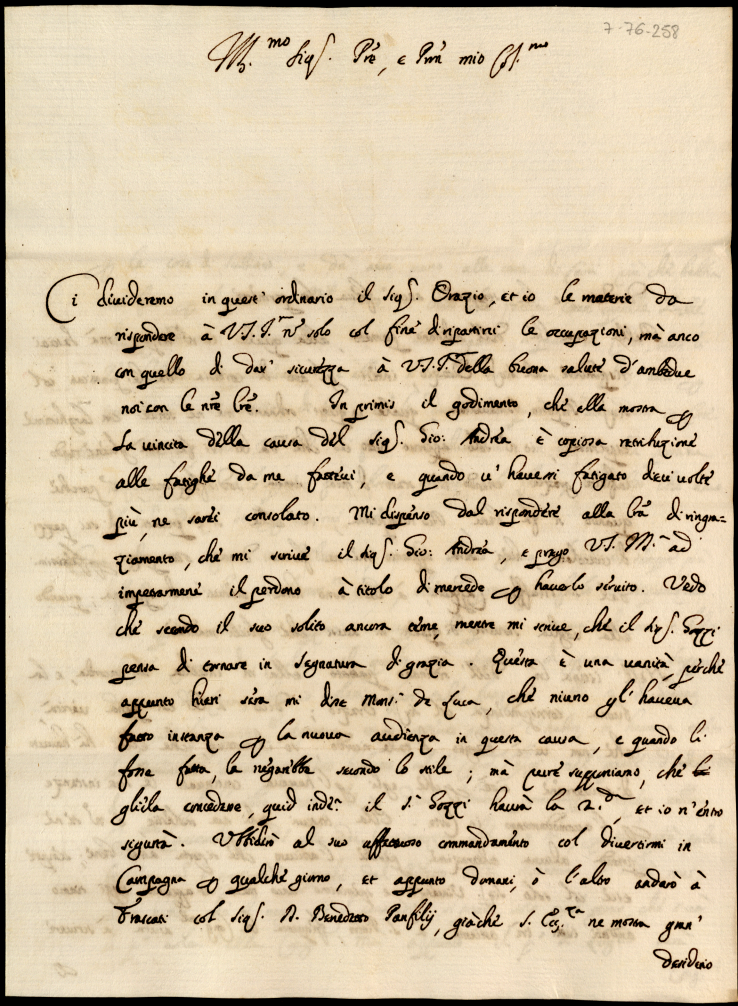 7-76-258
Ill.mo Sig.r Prē, e Prōn mio Col.mo
Ci diuideremo in quest' ordinario il Sig.r Orazio, et io le materie da
rispondere à V.S. Ill. nō solo col fine di ripartirci le occupazioni, mà anco
con quello di dar' sicurezza à V.S. Ill. della buona salute d'ambedue
noi con le nrē lrē. In primis il godimento, che ella mostra p
la uincita della causa del Sig.r Gio: Andrea è copiosa retribuzione
alle fatighe da me fatteui, e quando u' hauessi fatigato dieci uolte
più, ne sarei consolato. Mi dispenso dal rispondere alla lrā di ringra=
ziamento, che mi scriue il Sig.r Gio: Andrea, e prego V.S. Ill. ad
impetrarmene il perdono à titolo di mercede p hauerlo seruito. Vedo
che secondo il suo solito ancora teme, mentre mi scriue, che il Sig.r Gozzi
pensa di tornare in Segnatura di grazia. Questa è una uanità, perche
appunto hieri sera mi disse Mons.r de Luca, che niuno gl' haueua
fatto instanza p la nuoua audienza in questa causa, e quando li
fosse fatta, la negarebbe secondo lo stile; mà pure supponiamo, che
gliela concedesse, quid inde? il S.r Gozzi haurà la 2.da, et io n'entro
sigurtà. Vbbidirò al suo affettuoso commandamento col diuertirmi in
Campagna p qualche giorno, et appunto domani, ò l'altro andarò à
Frascati col Sig.r D. Benedetto Panfilij, giàche S. Ecc.za ne mostra gran'
desiderio